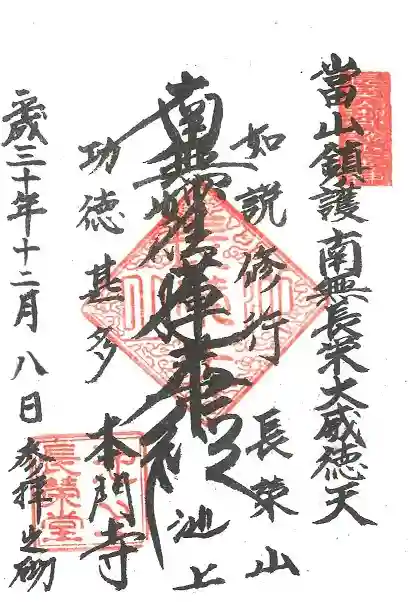 當山鎮護 南無長栄大威徳天
如説修行 長榮山
南無妙法蓮華経 池上
功徳甚多 本門寺
三十年十二月八日 参拝之砌
長榮堂